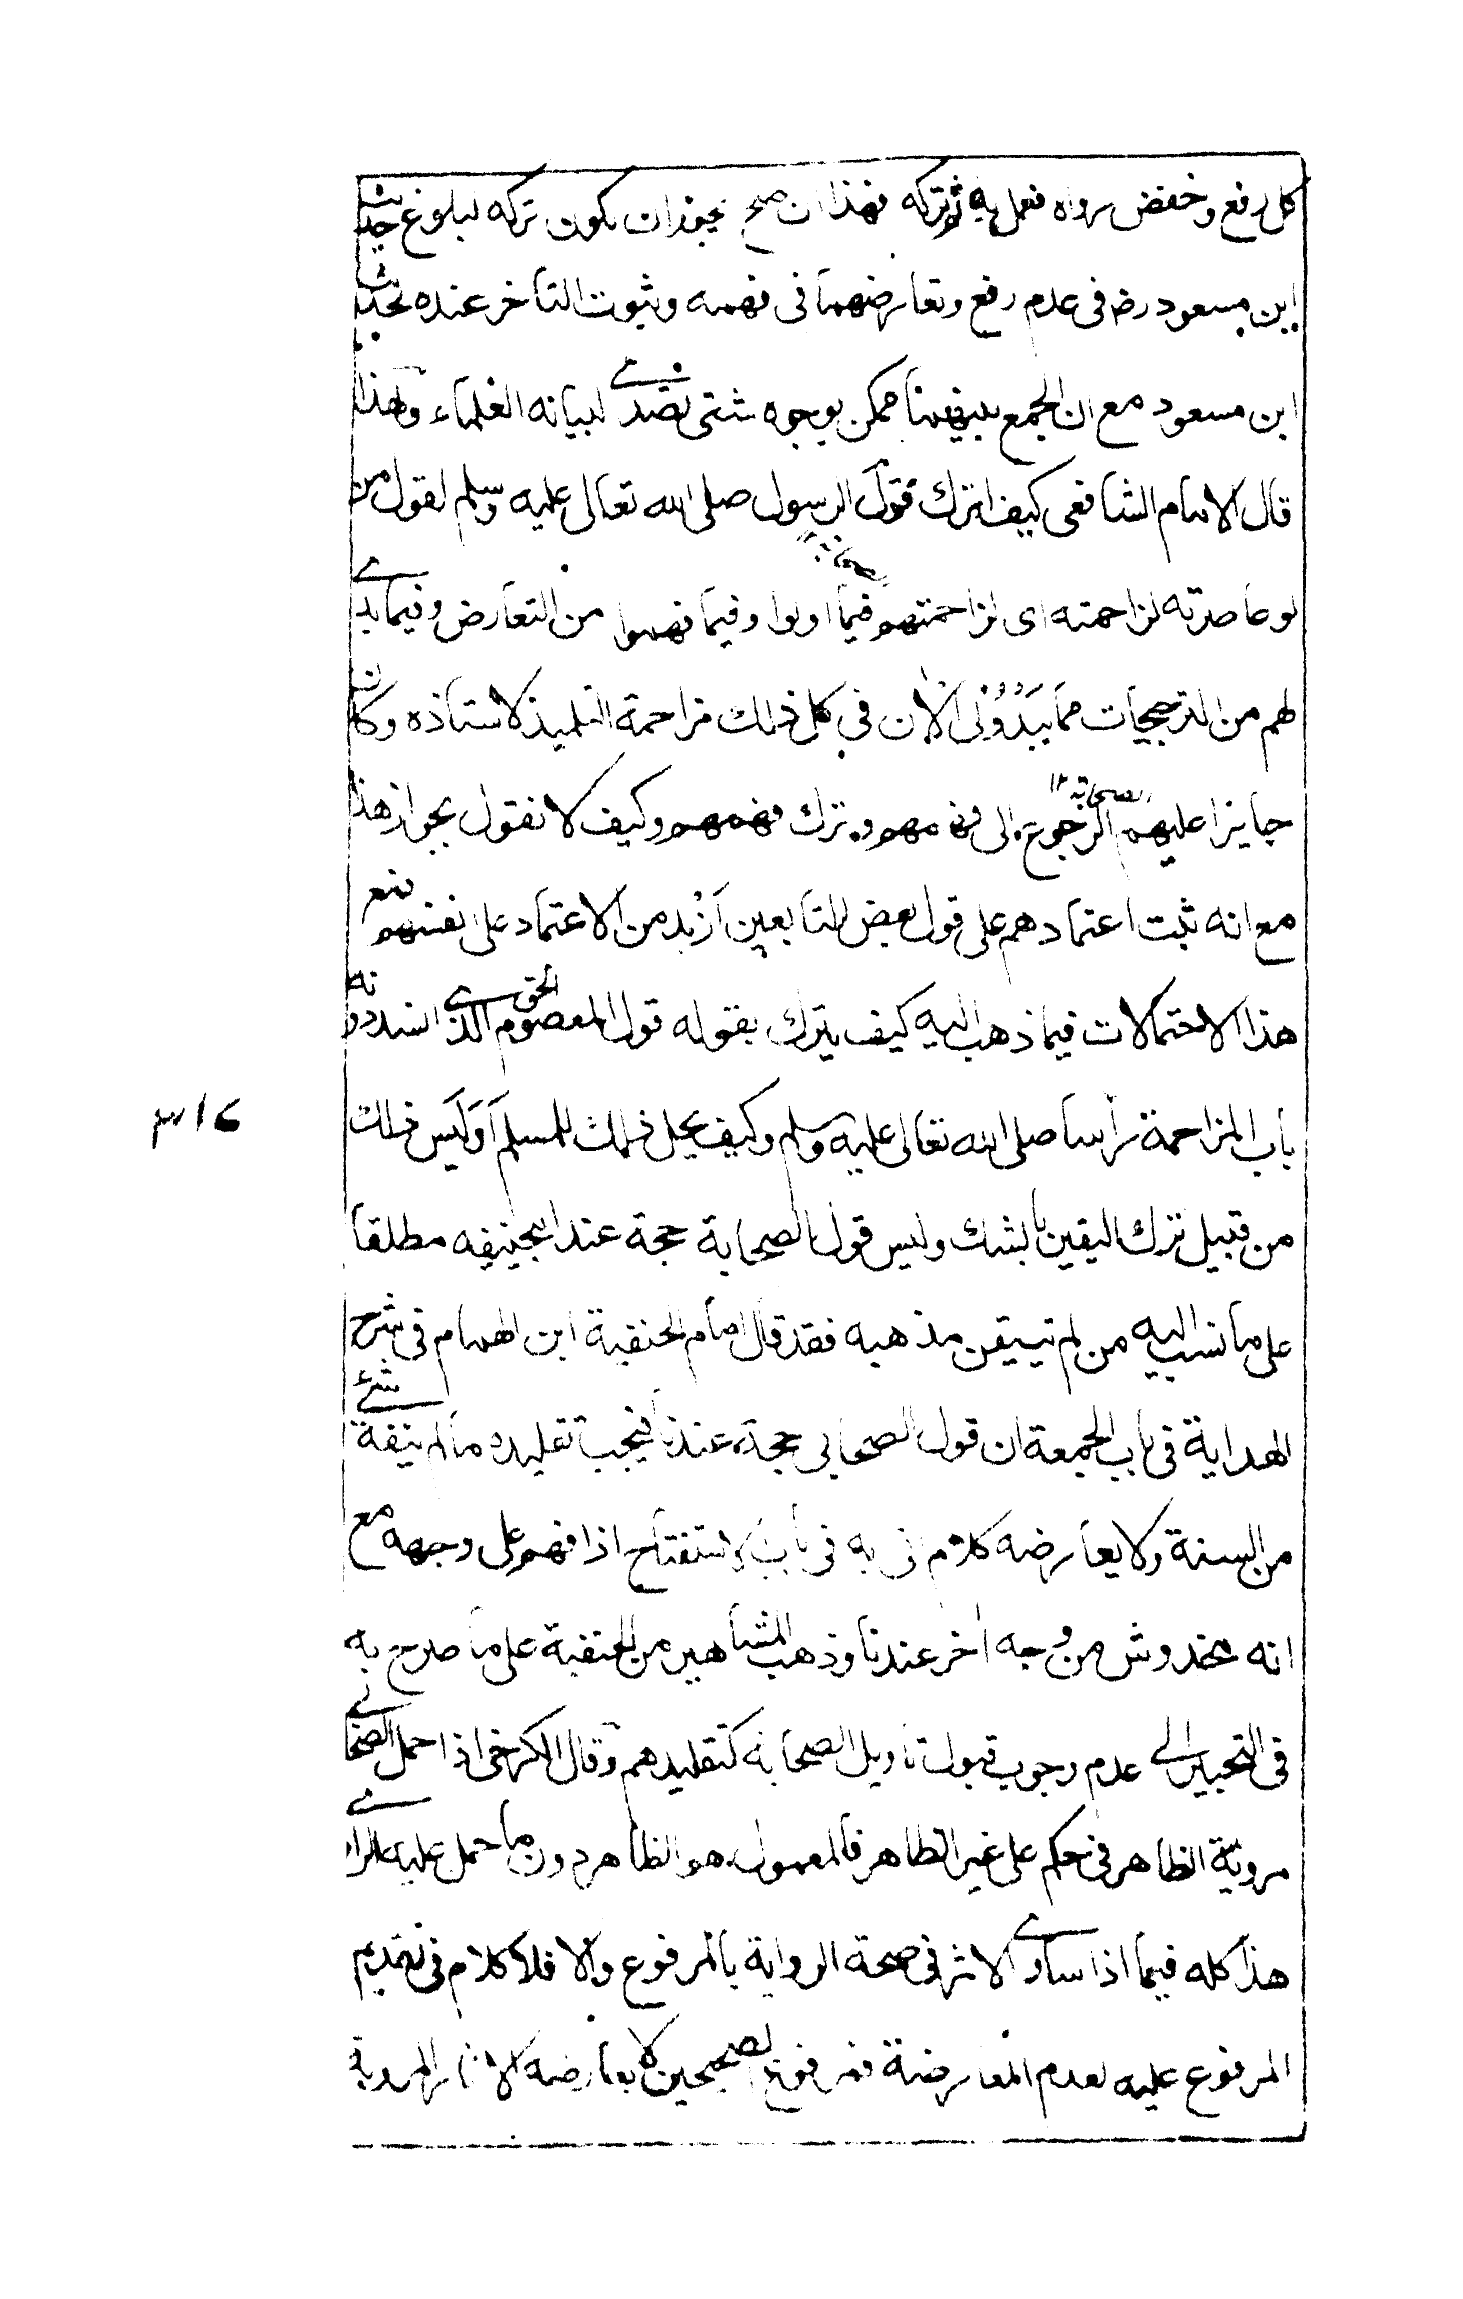 كل رفع وخفض رواه فعمل به ثم تركه فهذا ان صح يجوز ان يكون تركه لبلوغ حديث
ابن مسعود رض فى عدم رفع وتعارضهما فى فهمه وثبوت التأخر عنده لحديث
ابن مسعود مع ان الجمع بينهما ممكن بوجوه شتى تصدى لبيانه العلماء ولهذا
قال الامام الشافعى كيف اترك قول الرسول صلى الله تعالى عليه وسلم لقول من
لو عاصرته لزاحمته اى لزاحمتهم فيما اولوا وفيما فهموا من التعارض وفيما يبدى
لهم من الترجيحات مما يبدو لى الآن فى كل ذلك مزاحمة التلميذ لاستاذه وكان
جايزا عليهم الرجوع الى فهمهم وترك فهمهم وكيف لا نقول بجواز هذا
الصحابة ١٢
مع انه ثبت اعتمادهم على قول بعض التابعين ازيد من الاعتماد على انفسهم فمع
هذا الاحتمالات فيما ذهب اليه كيف يترك بقوله قول المعصوم الحق الذى انسد دونه
باب المزاحمة رأسا صلى الله تعالى عليه وسلم وكيف يحل ذلك للمسلم أوليس ذلك
٣١٦
من قبيل ترك اليقين بالشك وليس قول الصحابة حجة عند ابيحنيفه مطلقا
على ما نسب اليه من لم يتيقن مذهبه فقد قال امام الحنفية ابن الهمام فى شرح
الهداية فى باب الجمعة ان قول الصحابى حجة عندنا فيجب تقليده ما لم ينفه شئ
من السنة ولا يعارضه كلام اتى به فى باب الاستفتاح اذا فهم على وجهه مع
انه مخدوش من وجه اخر عندنا وذهب المشاهير من الحنفية على ما صرح به
فى التحبير الى عدم وجوب قبول تاويل الصحابة كتقليدهم وقال الكرخى اذا حمل الصحابى
مرويه الظاهر فى حكم على غير الظاهر فالمعمول هو الظاهر دون ما حمل عليه الراوى
هذا كله فيما اذا ساوى الاثر فى صحة الرواية بالمرفوع والا فلا كلام فى تقديم
المرفوع عليه لعدم المعارضة فمرفوع الصحيحين لا يعارضه الاثار المروية